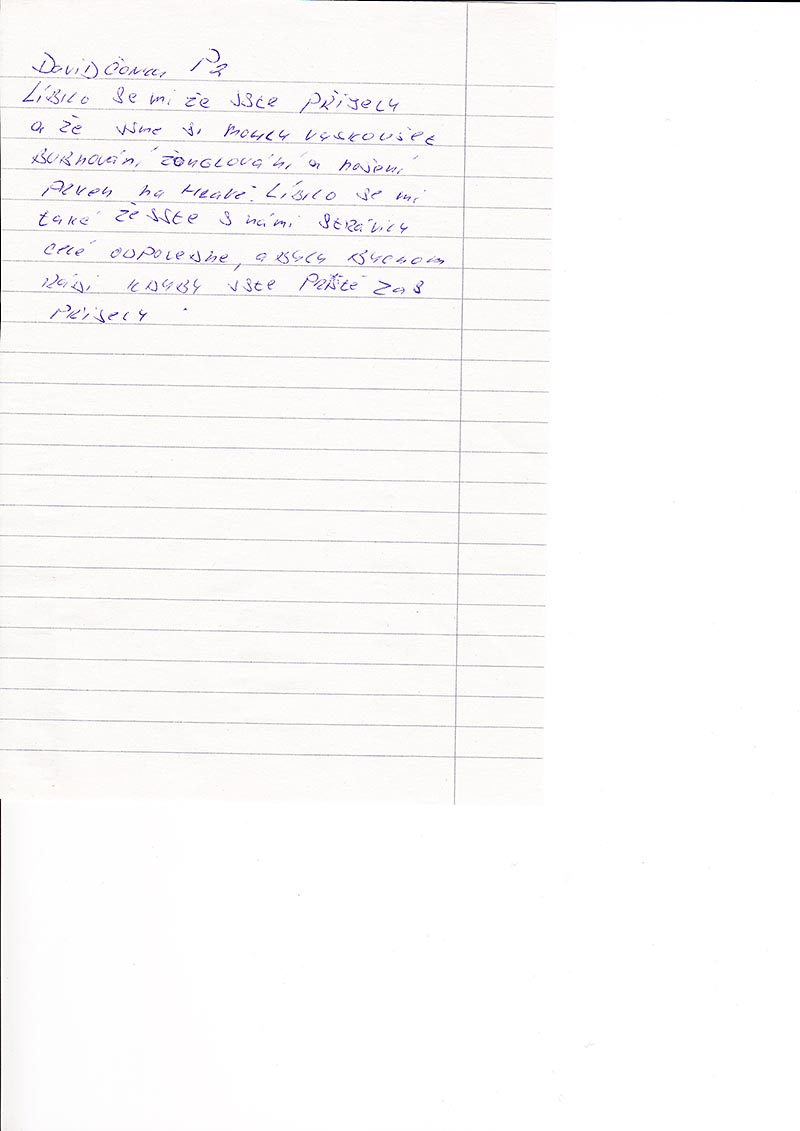 David Čonka P2
Líbilo se mi že jste přijely
a že jsme si mohly vyskoušet
bubnování žonglování a nošení
na hlavě. Líbilo se mi
také že jste s námi strávily
celé odpoledne, a byly bychom
rádi kdyby jste příště zas
přijely